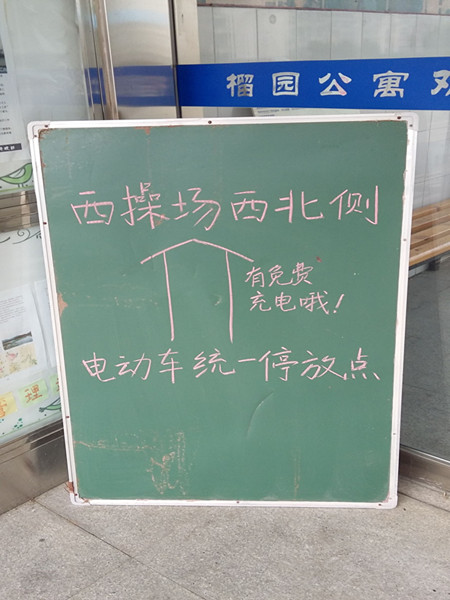 榴园公寓
西操场西北侧
有免费
充电哦！
电动车统一停放点
理